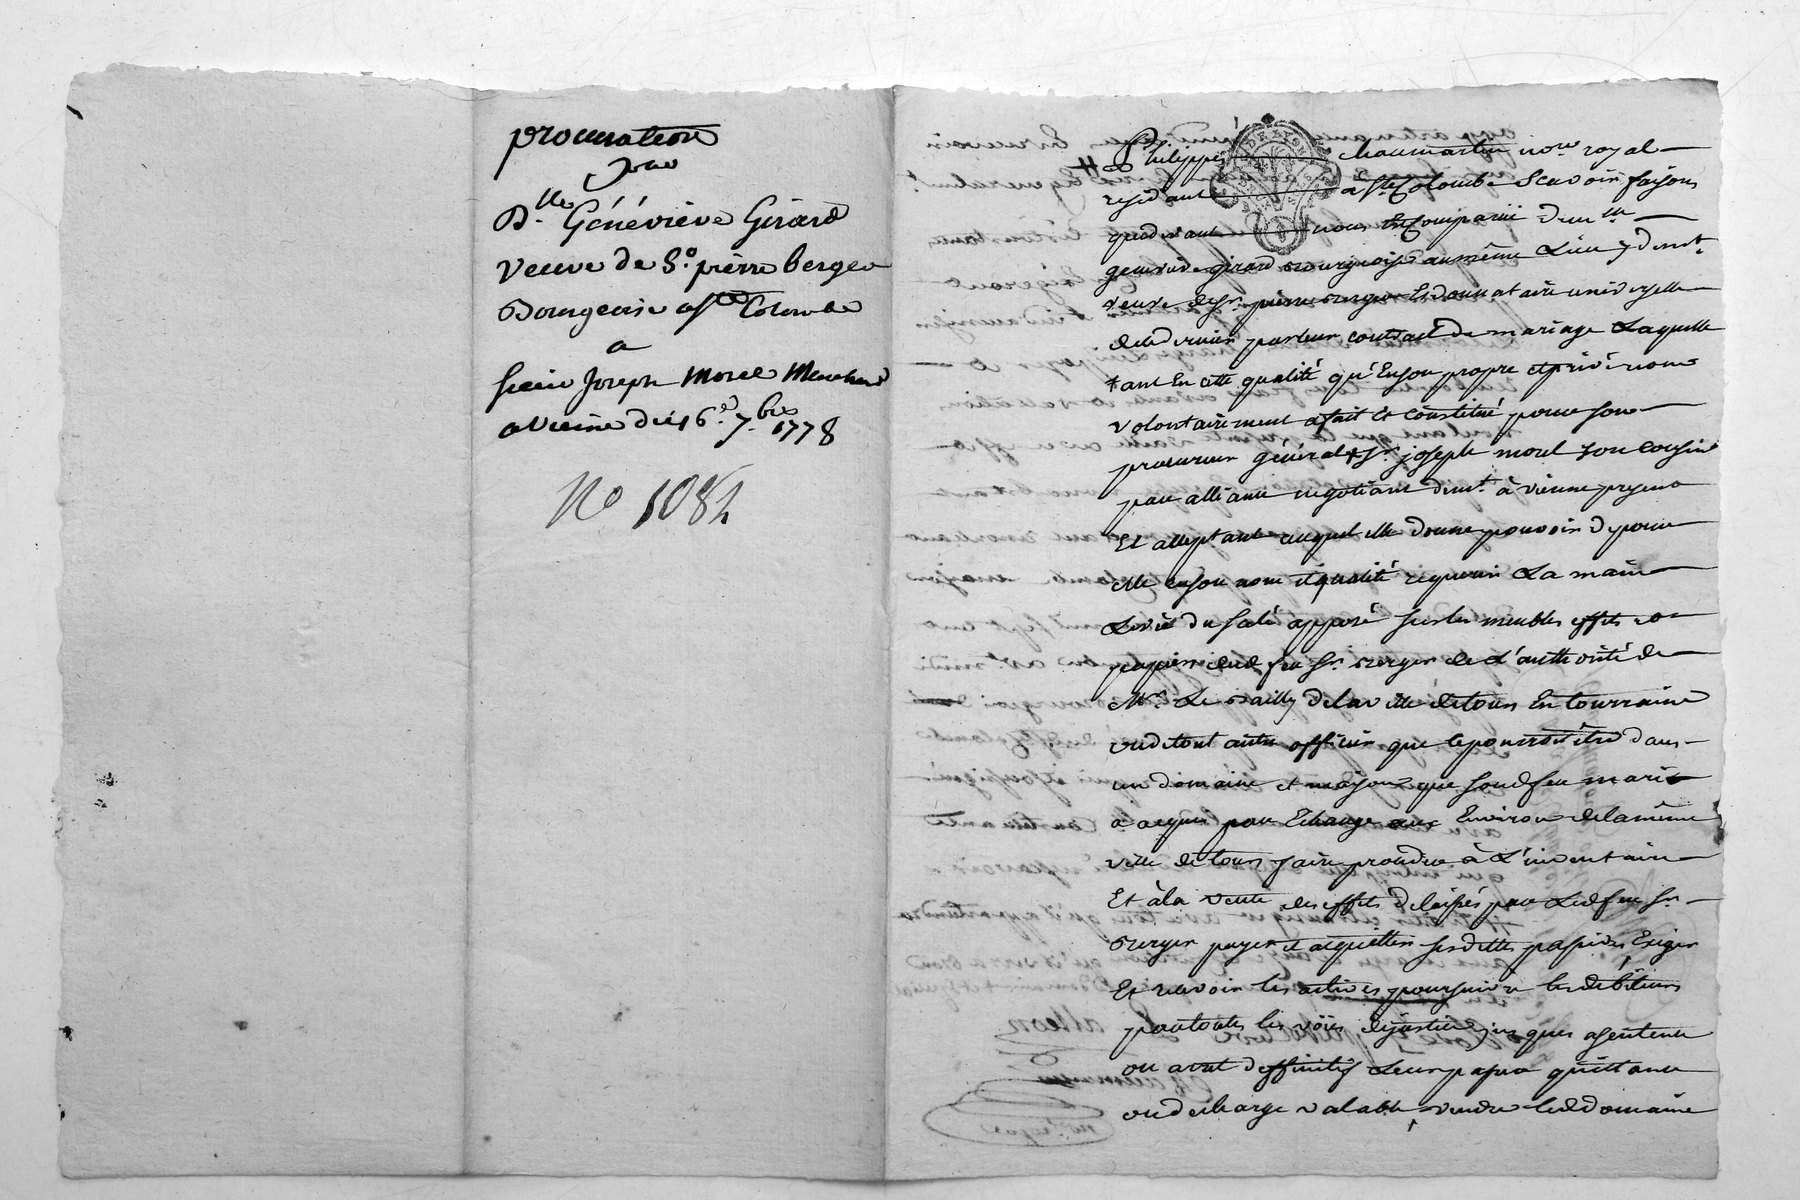 procuration
pour
D.lle Généviéve Girard
veuve de S.r pierre berger
Bourgeoise a Ste Colombe
a
sieur Joseph Morel Marchand
a Vienne du 16.e 7.bre 1778
No 1084
Philippe Chaumartin no.re royal
residant a Ste Colombe scavoir faisons
que devant nous est Comparüe dem.lle
genevieve girard bourgeoise au même Lieu y dem.t
veuve de s.r pierre berger Et donnataire universelle
de ce dernier par leur contract de mariage Laquelle
tant En cette qualité qu'En son propre et privé nom
volontairement a fait et constitué pour son
procureur général s.r joseph morel son cousin
par alliance negotiant dem.t à vienne present
Et acceptant auquel elle donne pouvoir de pour
elle en son nom et qualité requerir La main
Levée du scelé apposé sur les meubles effets et
papiers dud. feu s.r berger de L'authorité de
M.r Le Bailly de la ville de tours En tourraine
ou de tout autre officier que ce pourroit être dans
un domaine et maison que sond. feu mari
a acquis par Echange aux Environs de la même
ville de tours faire proceder à L'inventaire
Et à la vente des effets delaissés par Led. feu s.r
berger payer et acquitter ses dettes passives Exiger
Et recevoir les actives poursuivre les débiteurs
par toutes les voies de justice jusques a sentence
ou arret deffinitif Leur passer quittance
ou decharge valable vendre led. domaine